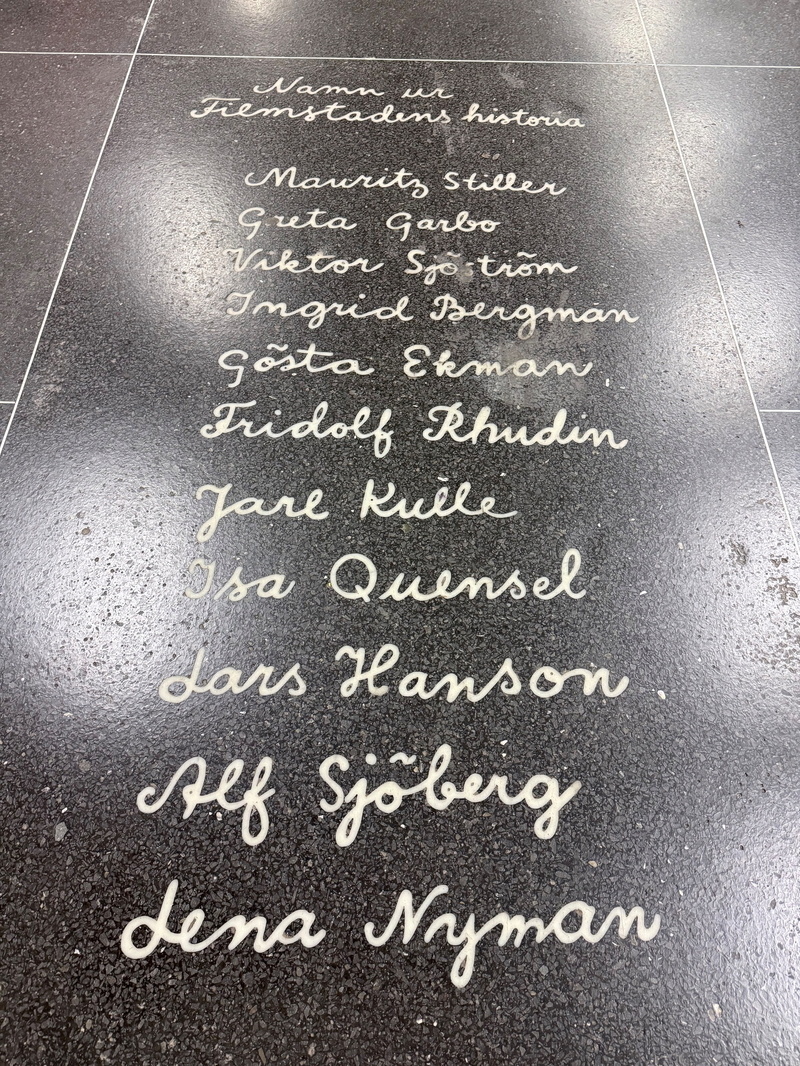 Namn ur
Filmstadens historia
Mauritz Stiller
Greta Garbo
Viktor Sjöström
Ingrid Bergman
Gösta Ekman
Fridolf Rhudin
Jarl Kulle
Isa Quensel
Lars Hanson
Alf Sjöberg
Lena Nyman